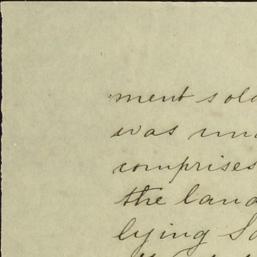 ment sold
was un
comprises
the land
lying So